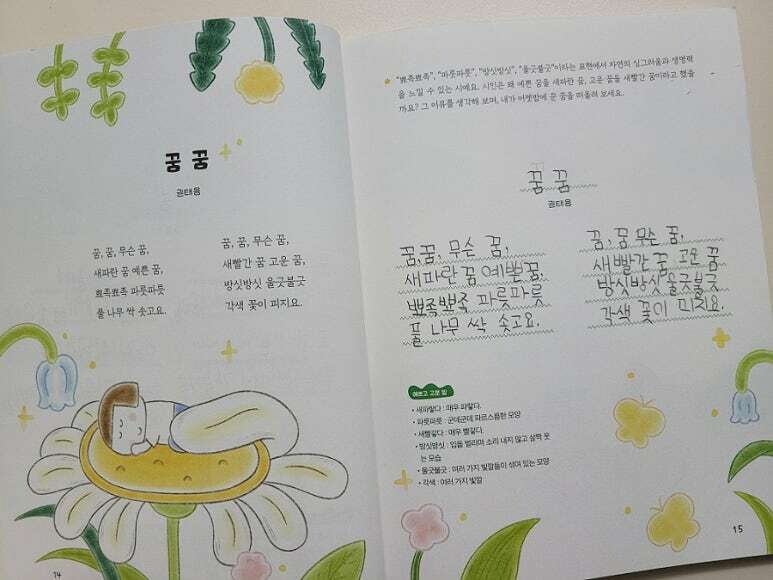 꿈 꿈
권태응
꿈, 꿈, 무슨 꿈,
새파란 꿈 예쁜 꿈,
뾰족뾰족 파릇파릇
풀 나무 싹 솟고요.
꿈, 꿈, 무슨 꿈,
새빨간 꿈 고운 꿈,
방싯방싯 울긋불긋
각색 꽃이 피지요.
14
"뾰족뾰족", "파릇파릇", "방싯방싯", "울긋불긋"이라는 표현에서 자연의 싱그러움과 생명력
을 느낄 수 있는 시예요. 시인은 왜 예쁜 꿈을 새파란 꿈, 고운 꿈을 새빨간 꿈이라고 했을
까요? 그 이유를 생각해 보며, 내가 어젯밤에 꾼 꿈을 떠올려 보세요.
꿈 꿈
권태응
꿈,꿈, 무슨 꿈,
새파란 꿈 예쁜꿈,
뾰족뾰족 파릇파릇
풀 나무 싹 솟고요.
꿈, 꿈 무슨 꿈,
새빨간 꿈, 고운 꿈
방싯방싯울긋불긋
각색 꽃이 피지요.
예쁘고 고운 말
• 새파랗다 : 매우 파랗다.
• 파릇파릇 : 군데군데 파르스름한 모양
• 새빨갛다 : 매우 빨갛다.
• 방싯방싯 : 입을 벌리며 소리 내지 않고 살짝 웃
는 모습
• 울긋불긋 : 여러 가지 빛깔들이 섞여 있는 모양
• 각색 : 여러 가지 빛깔
15